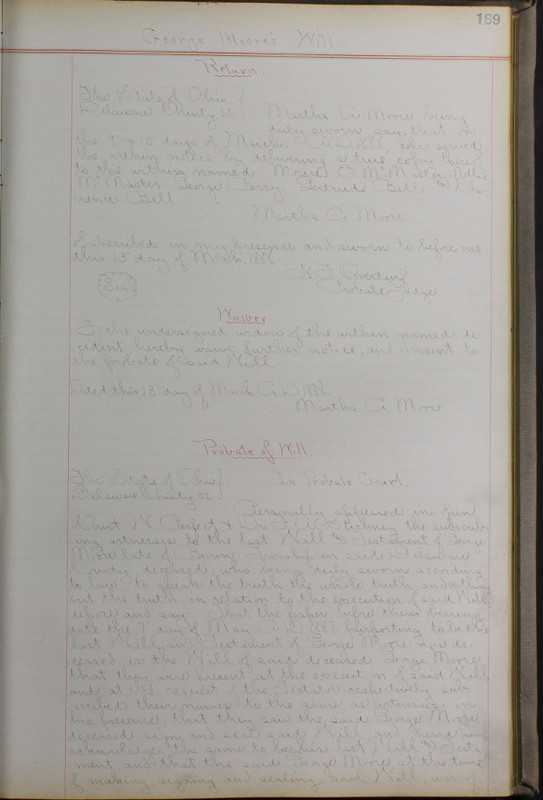 169
George Moore's Will.
Return.
The State of Ohio
Delaware County, ss. Martha A. Moore being
duly sworn says that on
the 9th & 10 days of March A. D. 1888, she served
the within notice by delivering a true copy thereof
to the within named McMaster, Nellie
McMaster, George Perry, Gertrude Bell & Cla-
rence Bell
Martha A. Moore
Subscribed in my presence and sworn to before me,
this 13 day of March, 1888.
Seal
Probate Judge
Waiver
I, the undersigned widow of the within named de
cedent, hereby waive further notice, and consent to
the probate of said Will.
Dated this 13 day of March A. D. 1888.
Martha A. Moore
Probate of Will.
The State of Ohio
Delaware County, ss. In Probate Court.
Personally appeared in open
Court N. Perfect & the subscrib-
ing witnesses to the last Will & Testament of George
Moore late of Township in said Delaware
County, deceased, who being duly sworn according
to law to speak the truth the whole truth and nothing
but the truth, in relation to the execution of said Will
depose and say, That the paper before them bearing
date the 7 day of May A. D. 1887, purporting to be the
last Will and Testament of George Moore now de-
ceased is the Will of said deceased George Moore,
that they were present at the execution of said Will
and at the request of the testator respectively sub
scribed their names to the same as witnesses, in
his presence, that they saw the said George Moore
deceased sign and seal said Will, and heard him
acknowledge the same to be his last Will & Testa-
ment, and that the said George Moore at the time
of making, signing and sealing said Will, was of